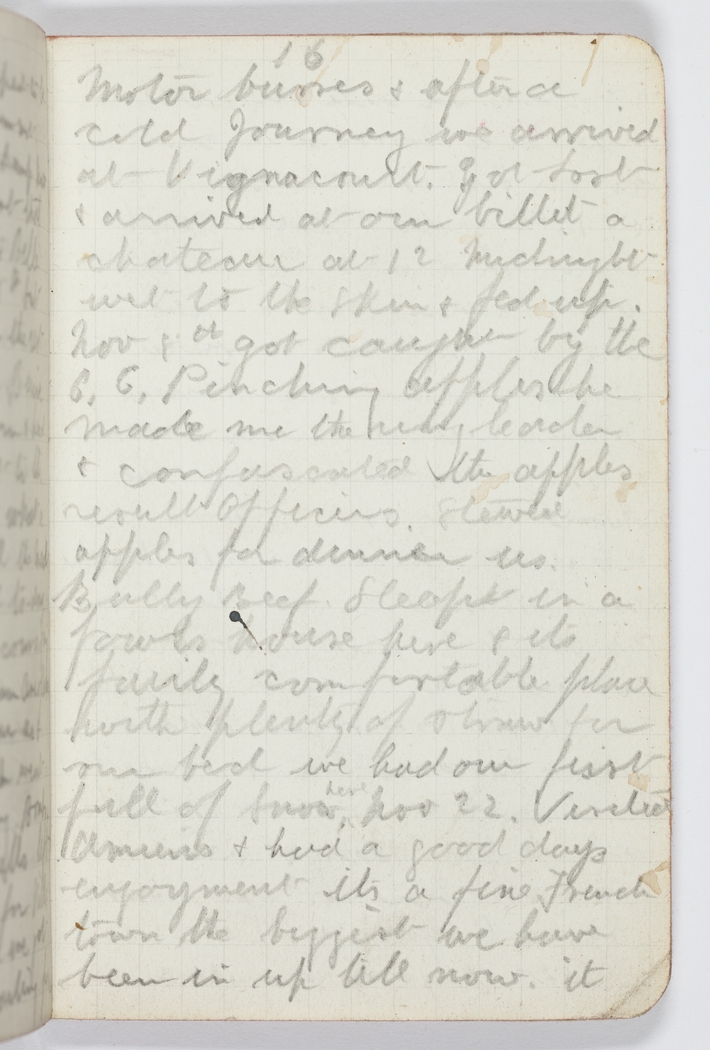 16
Motor busses & after a
cold Journey we arrived
at Vignacourt. Got lost
& arrived at our billet a
chateau at 12 Midnight
wet to the skin & fed up.
Nov 8th got caught by the
C, C, Pinching apples he
made me the ring leader
& confuscated the apples
result Officers. Stewed
apples for dinner us.
Bully Beef. Sleept in a
fowls house here & its
fairly comfortable place
with plenty of straw for
our bed we had our first
fall of Snow here, Nov 22. Visited
Amiens & had a good days
enjoyment its a fine French
town the biggest we have
been in up till now. it